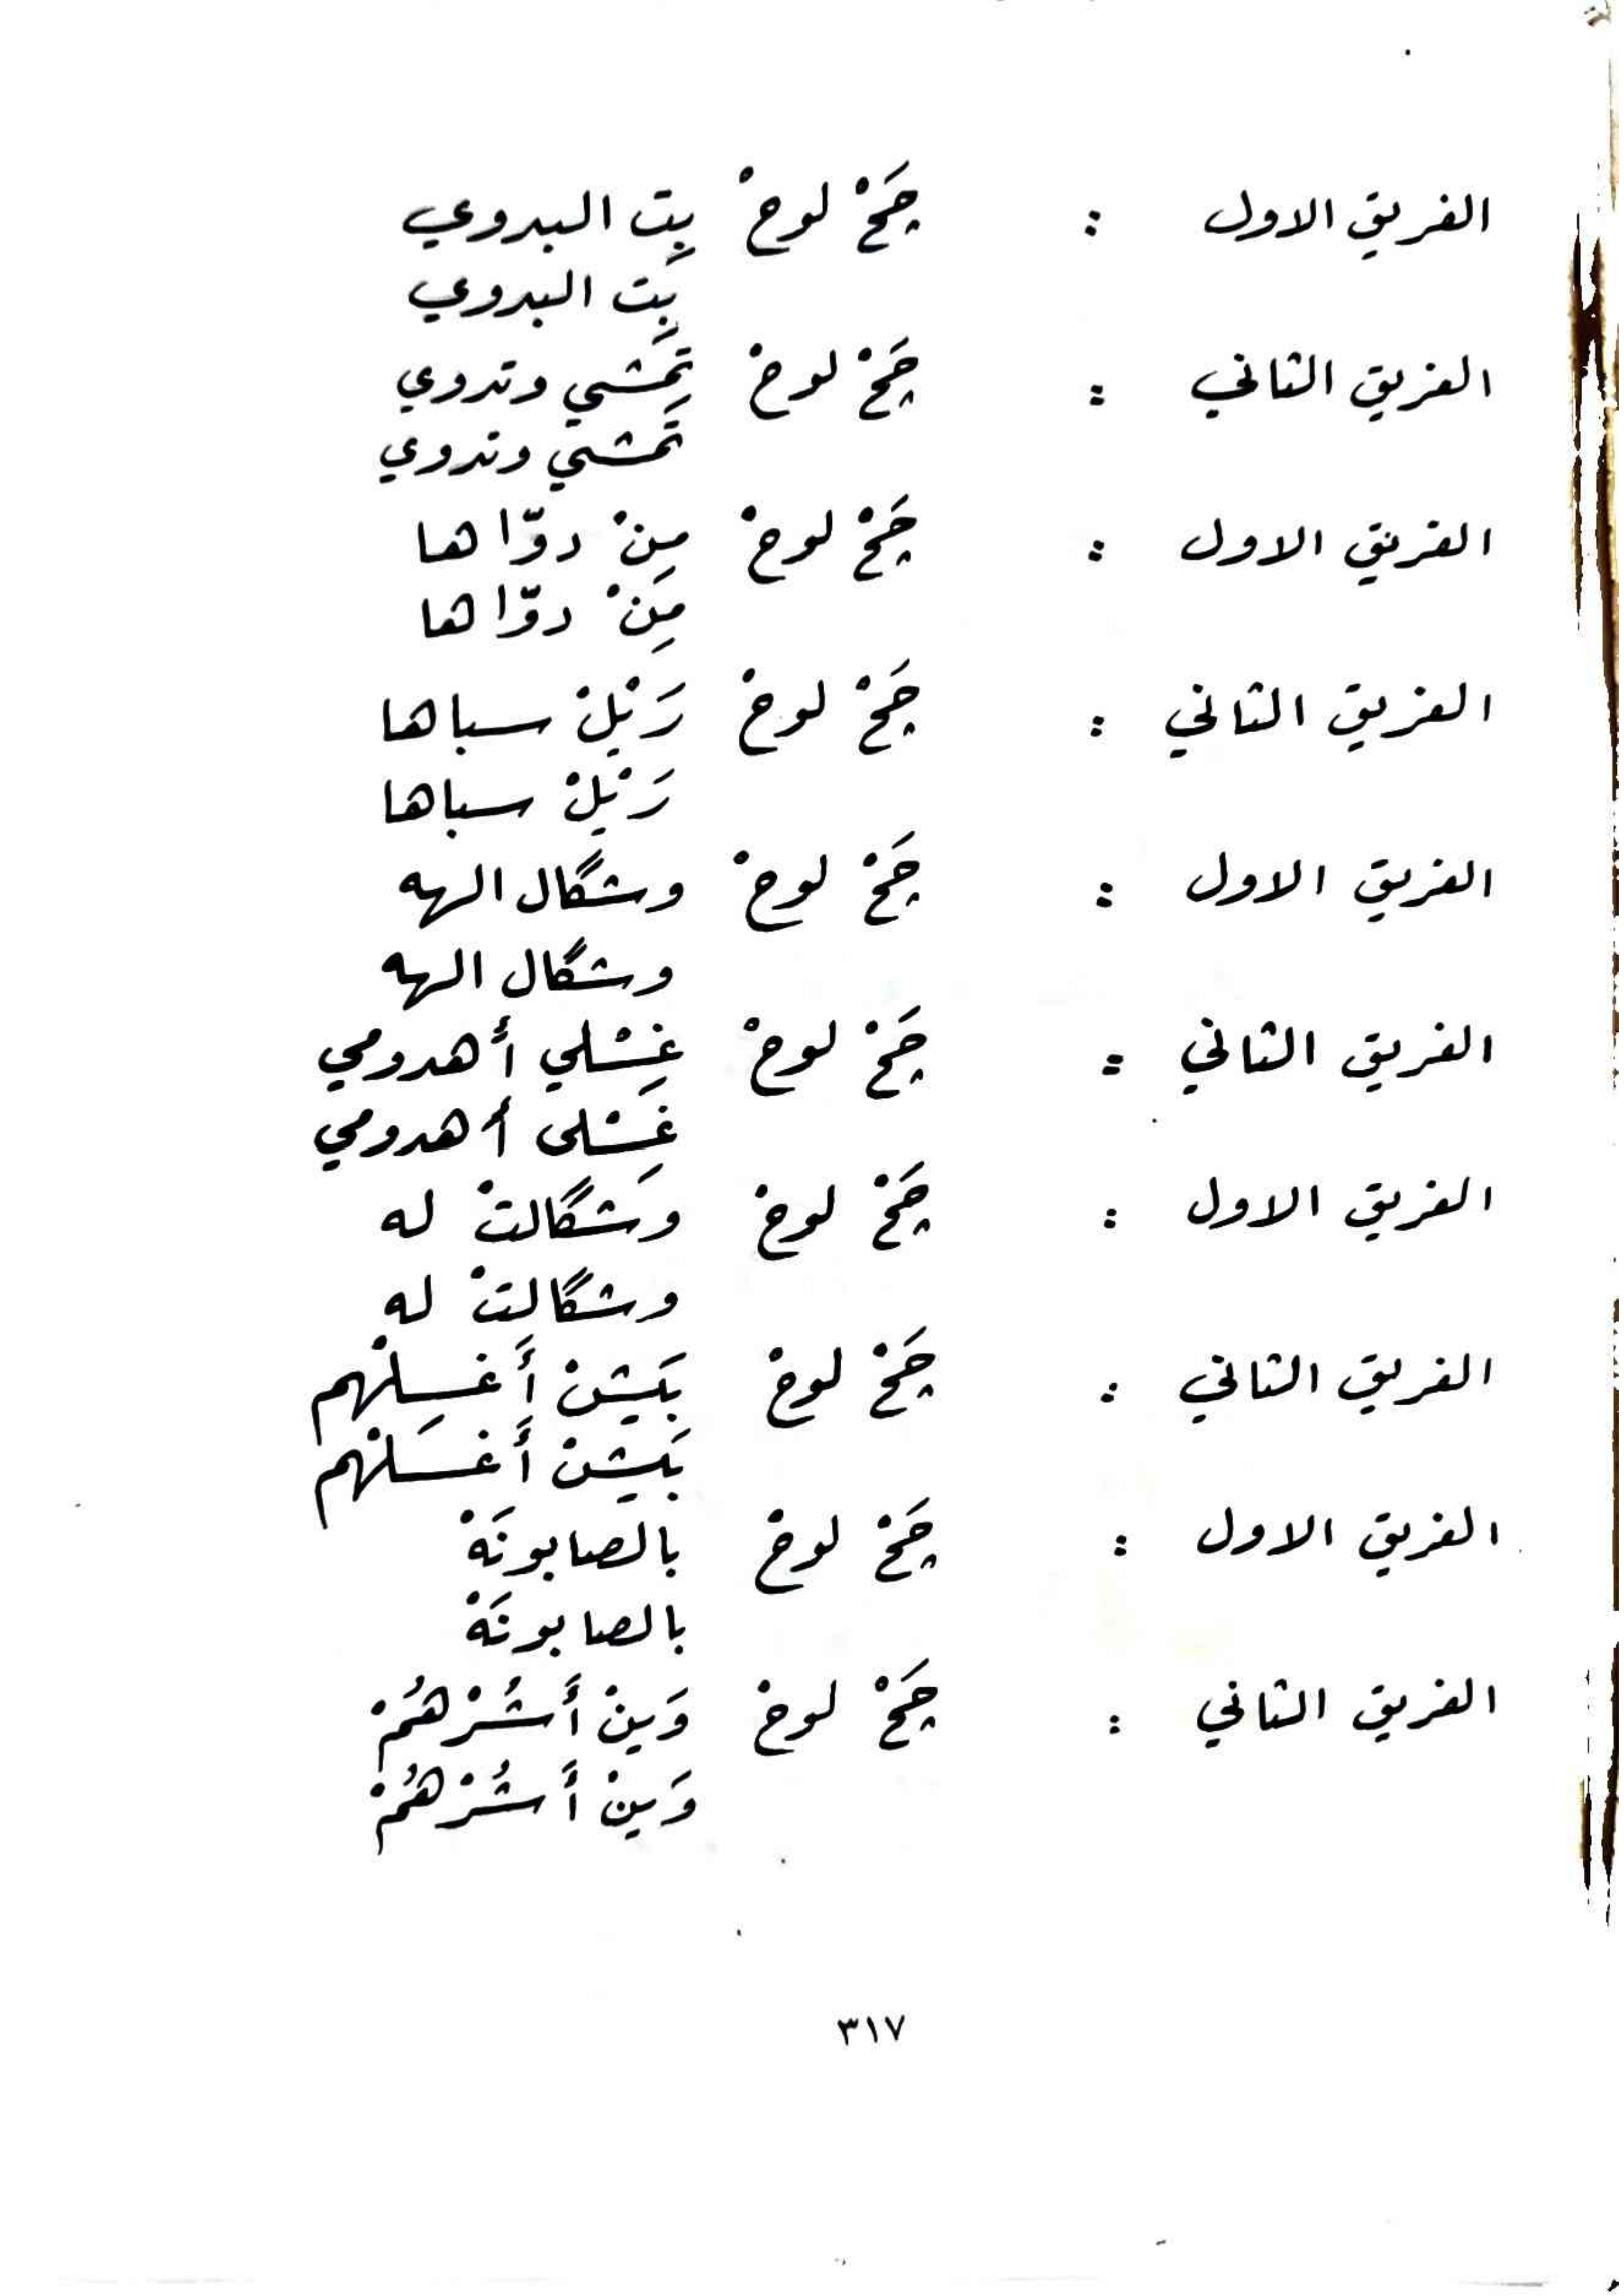 الفريق الاول : چَخْ لوخْ بِت البدوي
بِت البدوي
الفريق الثاني : چَخْ لوخْ تَمِشي وتدوي
تَمشي وتدوي
الفريق الاول : چَخْ لوخْ مِنْ دوّاها
مِنْ دوّاها
الفريق الثاني : چَخْ لوخْ رَيْلْ سباها
رَيْلْ سباها
الفريق الاول : چَخْ لوخْ وشگال الهه
وشگال الهه
الفريق الثاني : چَخْ لوخْ غِسْلي أهدومي
غَسْلى أهدومي
الفريق الاول : چَخْ لوخْ وشگالتْ له
وشگالتْ له
الفريق الثاني : چَخْ لوخْ بَيشْ أَغسِلْهم
بَيشْ أَغسَلْهم
الفريق الاول : چَخْ لوخْ بالصابونَهْ
بالصابونَهْ
الفريق الثاني : چَخْ لوخْ وَينْ أَشُرْهُمْ
وَينْ أَشُرْهُمْ
٣١٧